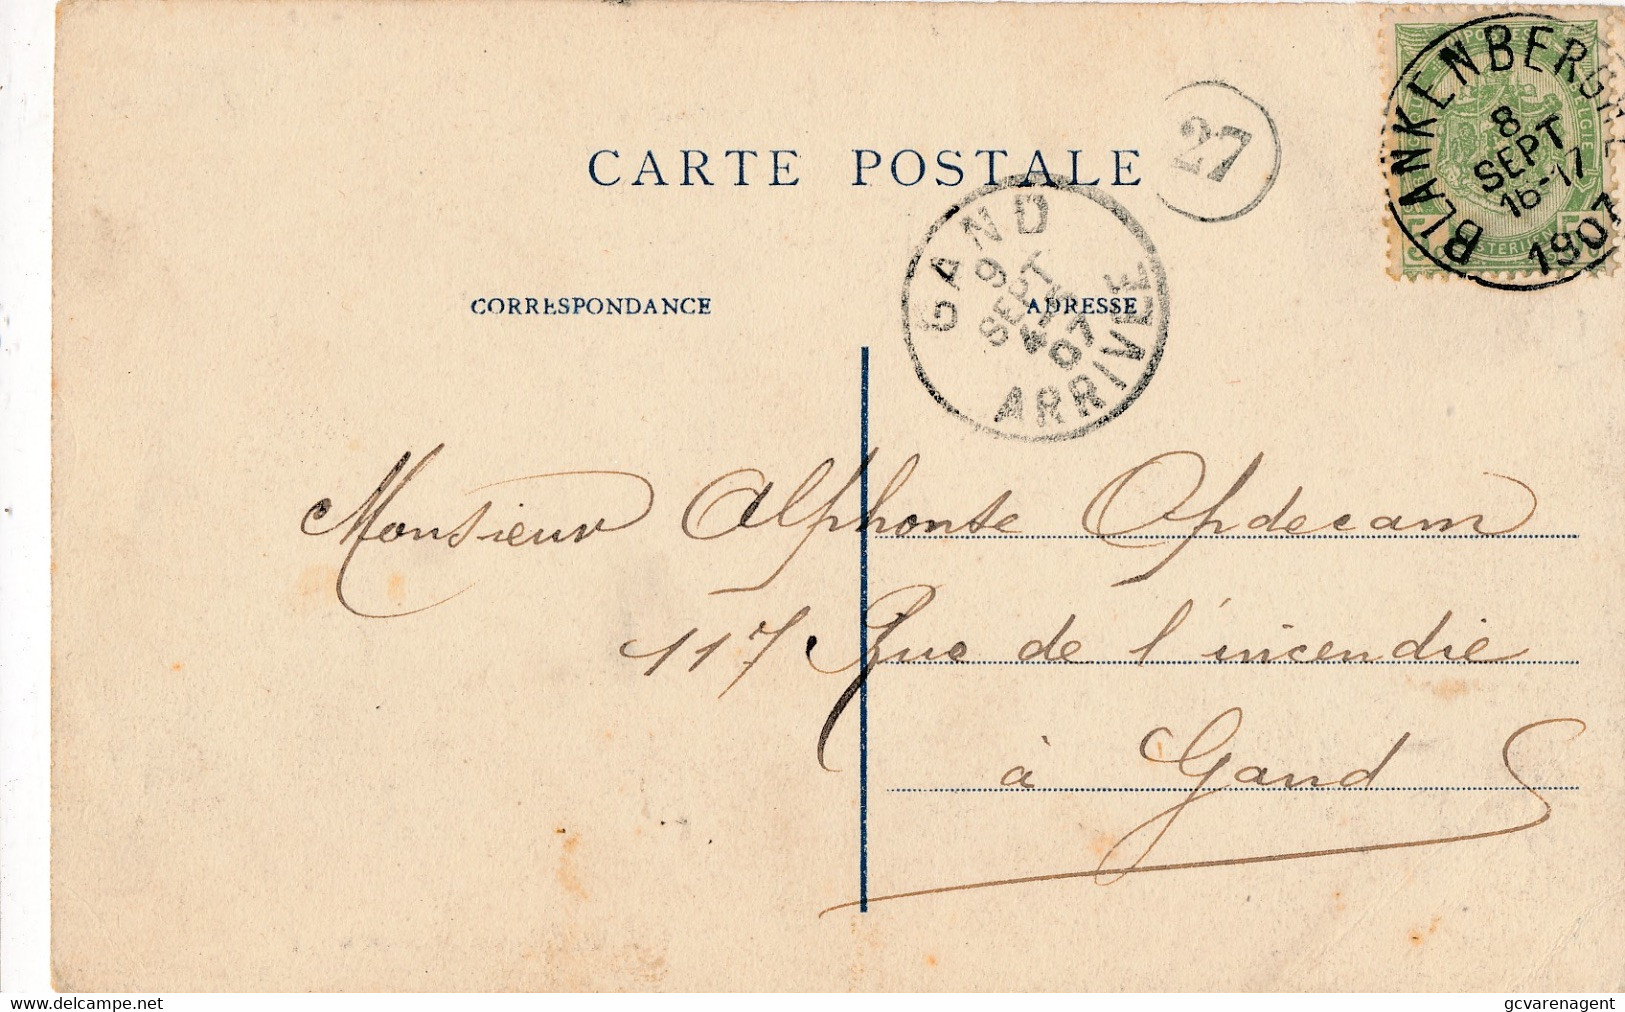 CARTE POSTALE
27
BLANKENBERGHE
8
SEPT
16-17
1907
POSTES
BELGIE
GAND
9
SEPT
07
ARRIVEE
CORRESPONDANCE
ADRESSE
Monsieur Alphonse Opdecam
117 Rue de l'incendie
à Gand
delcampe.net
gcvarenagent